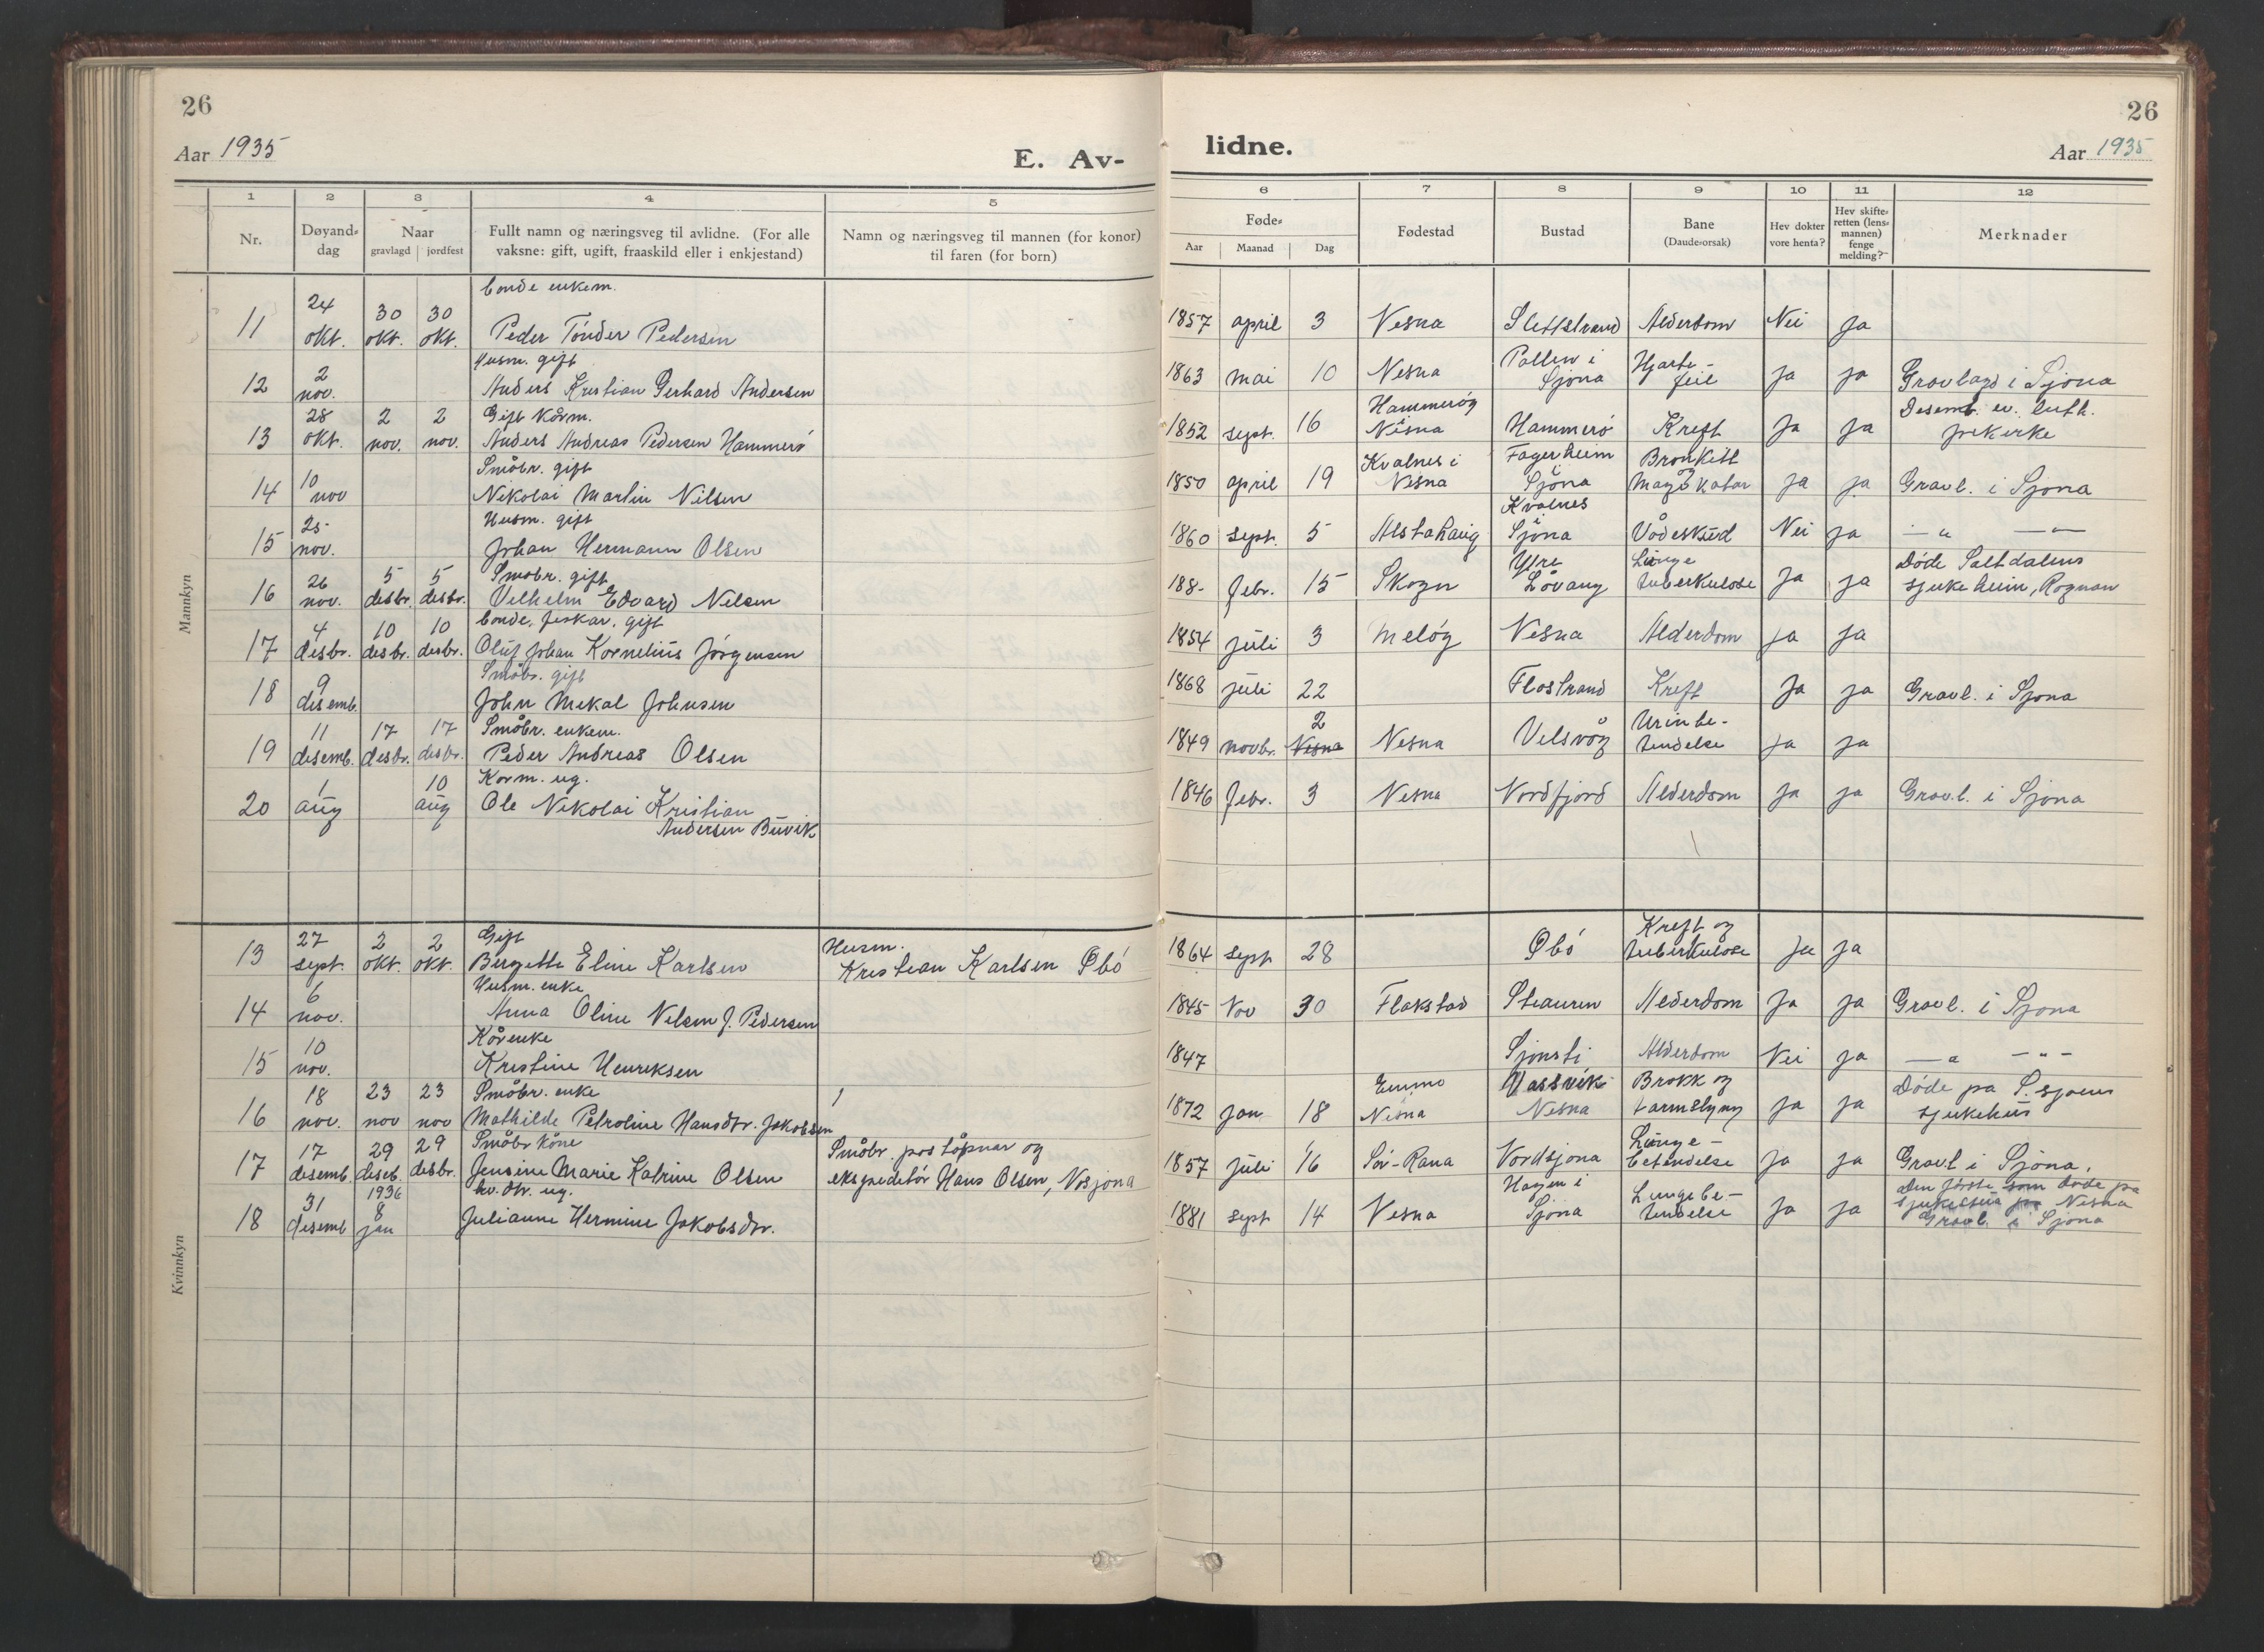 26
Aar 1935
E. Av-
1 2 3 4 5
Nr.
Døyand-
dag
Naar
gravlagd jordfest
Fullt namn og næringsveg til avlidne. (For alle
vaksne: gift, ugift, fraaskild eller i enkjestand)
Namn og næringsveg til mannen (for konor)
til faren (for born)
Mannkyn
bonde enkem.
11 24 okt. 30 okt. 30 okt. Peder Tönder Pedersen
Husm. gift
12 2 nov. Anders Kristian Gerhard Andersen
Gift kårm.
13 28 okt. 2 nov. 2 nov. Anders Andreas Pedersen Hammerö
Småbr. gift
14 10 nov Nikolai Martin Nilsen
Husm. gift
15 25 nov. Johan Hermann Olsen
Småbr. gift
16 26 nov. 5 desbr. 5 desbr. Vilhelm Edvard Nilsen
bonde, fiskar, gift
17 4 desbr. 10 desbr. 10 desbr. Oluf Johan Kornelius Jörgensen
Småbr. gift
18 9 desemb. John Mikal Johnsen
Småbr. enkem.
19 11 desemb. 17 desbr. 17 desbr. Peder Andreas Olsen
Korm. ug.
20 1 aug 10 aug Ole Nikolai Kristian
Andersen Buvik
Kvinnkyn
Gift
Husm.
13 27 sept. 2 okt. 2 okt. Birgitte Eline Karlsen Kristian Karlsen Øbö
Husm. enke
14 6 nov. Anna Oline Nilsen f. Pedersen
Kårenke
15 10 nov. Kristine Henriksen
Småbr. enke
16 18 nov. 23 nov 23 nov Mathilde Petroline Hansdtr. Jakobsen
Småbr kone Småbr. poståpnar og
17 17 desemb. 29 deseb. 29 desbr. Jensine Marie Katrine Olsen ekspeditör Hans Olsen, Nosjona
1936
18 31 desemb 8 jan Julianne Hermine Jakobsdtr.
26
lidne.
Aar 1935
6 7 8 9 10 11 12
Føde-
Aar Maanad Dag
Fødestad
Bustad
Bane
(Daude-orsak)
Hev dokter
vore henta?
Hev skifte-
retten (lens-
mannen)
fenge
melding?
Merknader
1857 april 3 Nesna Slettstrand Alderdom Nei Ja
Pollen i Hjarte-
1863 mai 10 Nesna Sjona feil Ja ja Gravlagd i Sjona
Hammeröy Desemb. ev. luth.
1852 sept. 16 Nesna Hammerö Kreft Ja Ja frikirke
Kvalnes i Fagerheim i Bronkitt og
1850 april 19 Nesna Sjona Magekatar Ja ja Gravl. i Sjona
Kvalnes i
1860 sept. 5 Alstahaug Sjona Vådeskud Nei ja — " — — " —
Ytre Lunge Döde Saltdalens
188- febr. 15 Skogn Lövang tuberkulose Ja ja sjukeheim, Rognan
1854 juli 3 Melöy Nesna Alderdom ja ja
1868 juli 22 Flostrand Kreft Ja ja Gravl. i Sjona
2 Urinbe-
1849 novbr. Nesna Nesna Velsvåg tendelse ja ja
1846 febr. 3 Nesna Nordfjord Alderdom ja ja Gravl. i Sjona
Kreft og
1864 sept 28 Øbö tuberkulose ja ja
1845 Nov 30 Flakstad Stauren Alderdom Ja ja Gravl. i Sjona
1847 Sjonsti Alderdom Nei ja — " — " —
Vassvik Brokk og Döde på S.sjoens
1872 jan 18 Nesna Nesna tarmslyng ja ja sjukehus
Lunge-
1857 juli 16 Sör-Rana Nordsjona betendelse ja ja Gravl i Sjona,
Hagen i Lungebe- Den förste som döde på
1881 sept 14 Nesna Sjona tendelse ja ja Sjukestua på Nesna
Gravl. i Sjona